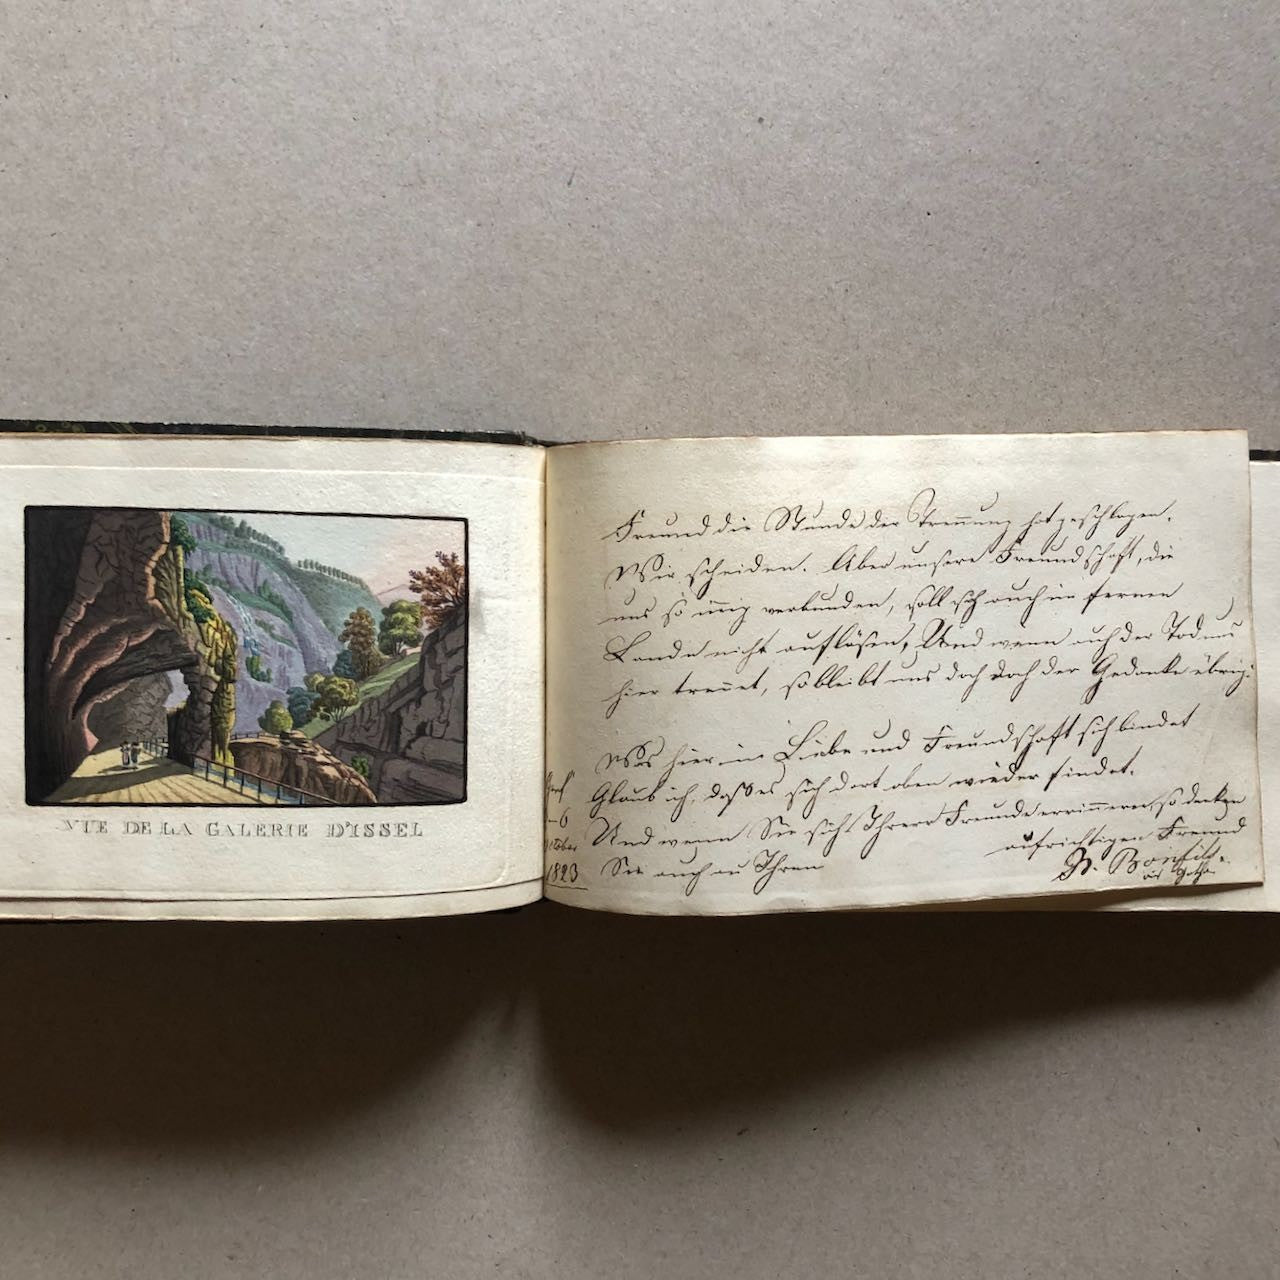 VUE DE LA GALERIE D'ISSEL
Freund die Stunde der Trennung hat geschlagen.
Wir scheiden. Aber unsere Freundschaft, die
uns so innig verbunden, soll sich auch im fernen
Lande nicht auflösen, Und wenn auch der Tod uns
hier trennet, so bleibt uns doch doch der Gedanke übrig:
Was hier in Liebe und Freundschaft sich bindet
Glaub ich, daß es sich dort oben wieder findet.
Und wenn Sie sich Ihrere Freunde errinneren, so denken
Sie auch an Ihren
aufrichtigen Freund
aus Gotha.
6
October
1823